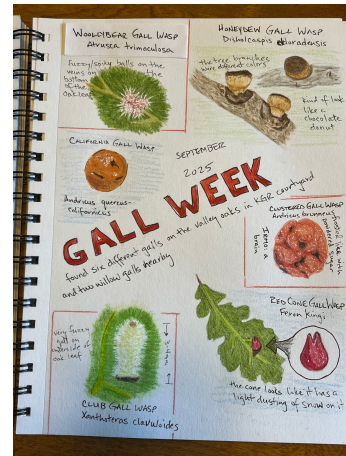 WOOLLYBEAR GALL WASP
Atrusca trimaculosa
Fuzzy/spiky balls on the
veins on the
bottom
of the
oak leaf
HONEYDEW GALL WASP
Disholcaspis eldoradensis
the tree branches
were different colors
kind of look
like a
chocolate
donut
CALIFORNIA GALL WASP
Andricus quercus-
californicus
SEPTEMBER
2025
GALL WEEK
found six different galls on the valley oaks in KGR courtyard
and two willow galls nearby
CLUSTERED GALL WASP
Andricus brunneus
frosted like with
powdered sugar
brain
very fuzzy
gall on
underside of
oak leaf
CLUB GALL WASP
Xanthoteras clavuloides
RED CONE GALL WASP
Feron kingi
the cone looks like it has a
light dusting of snow on it